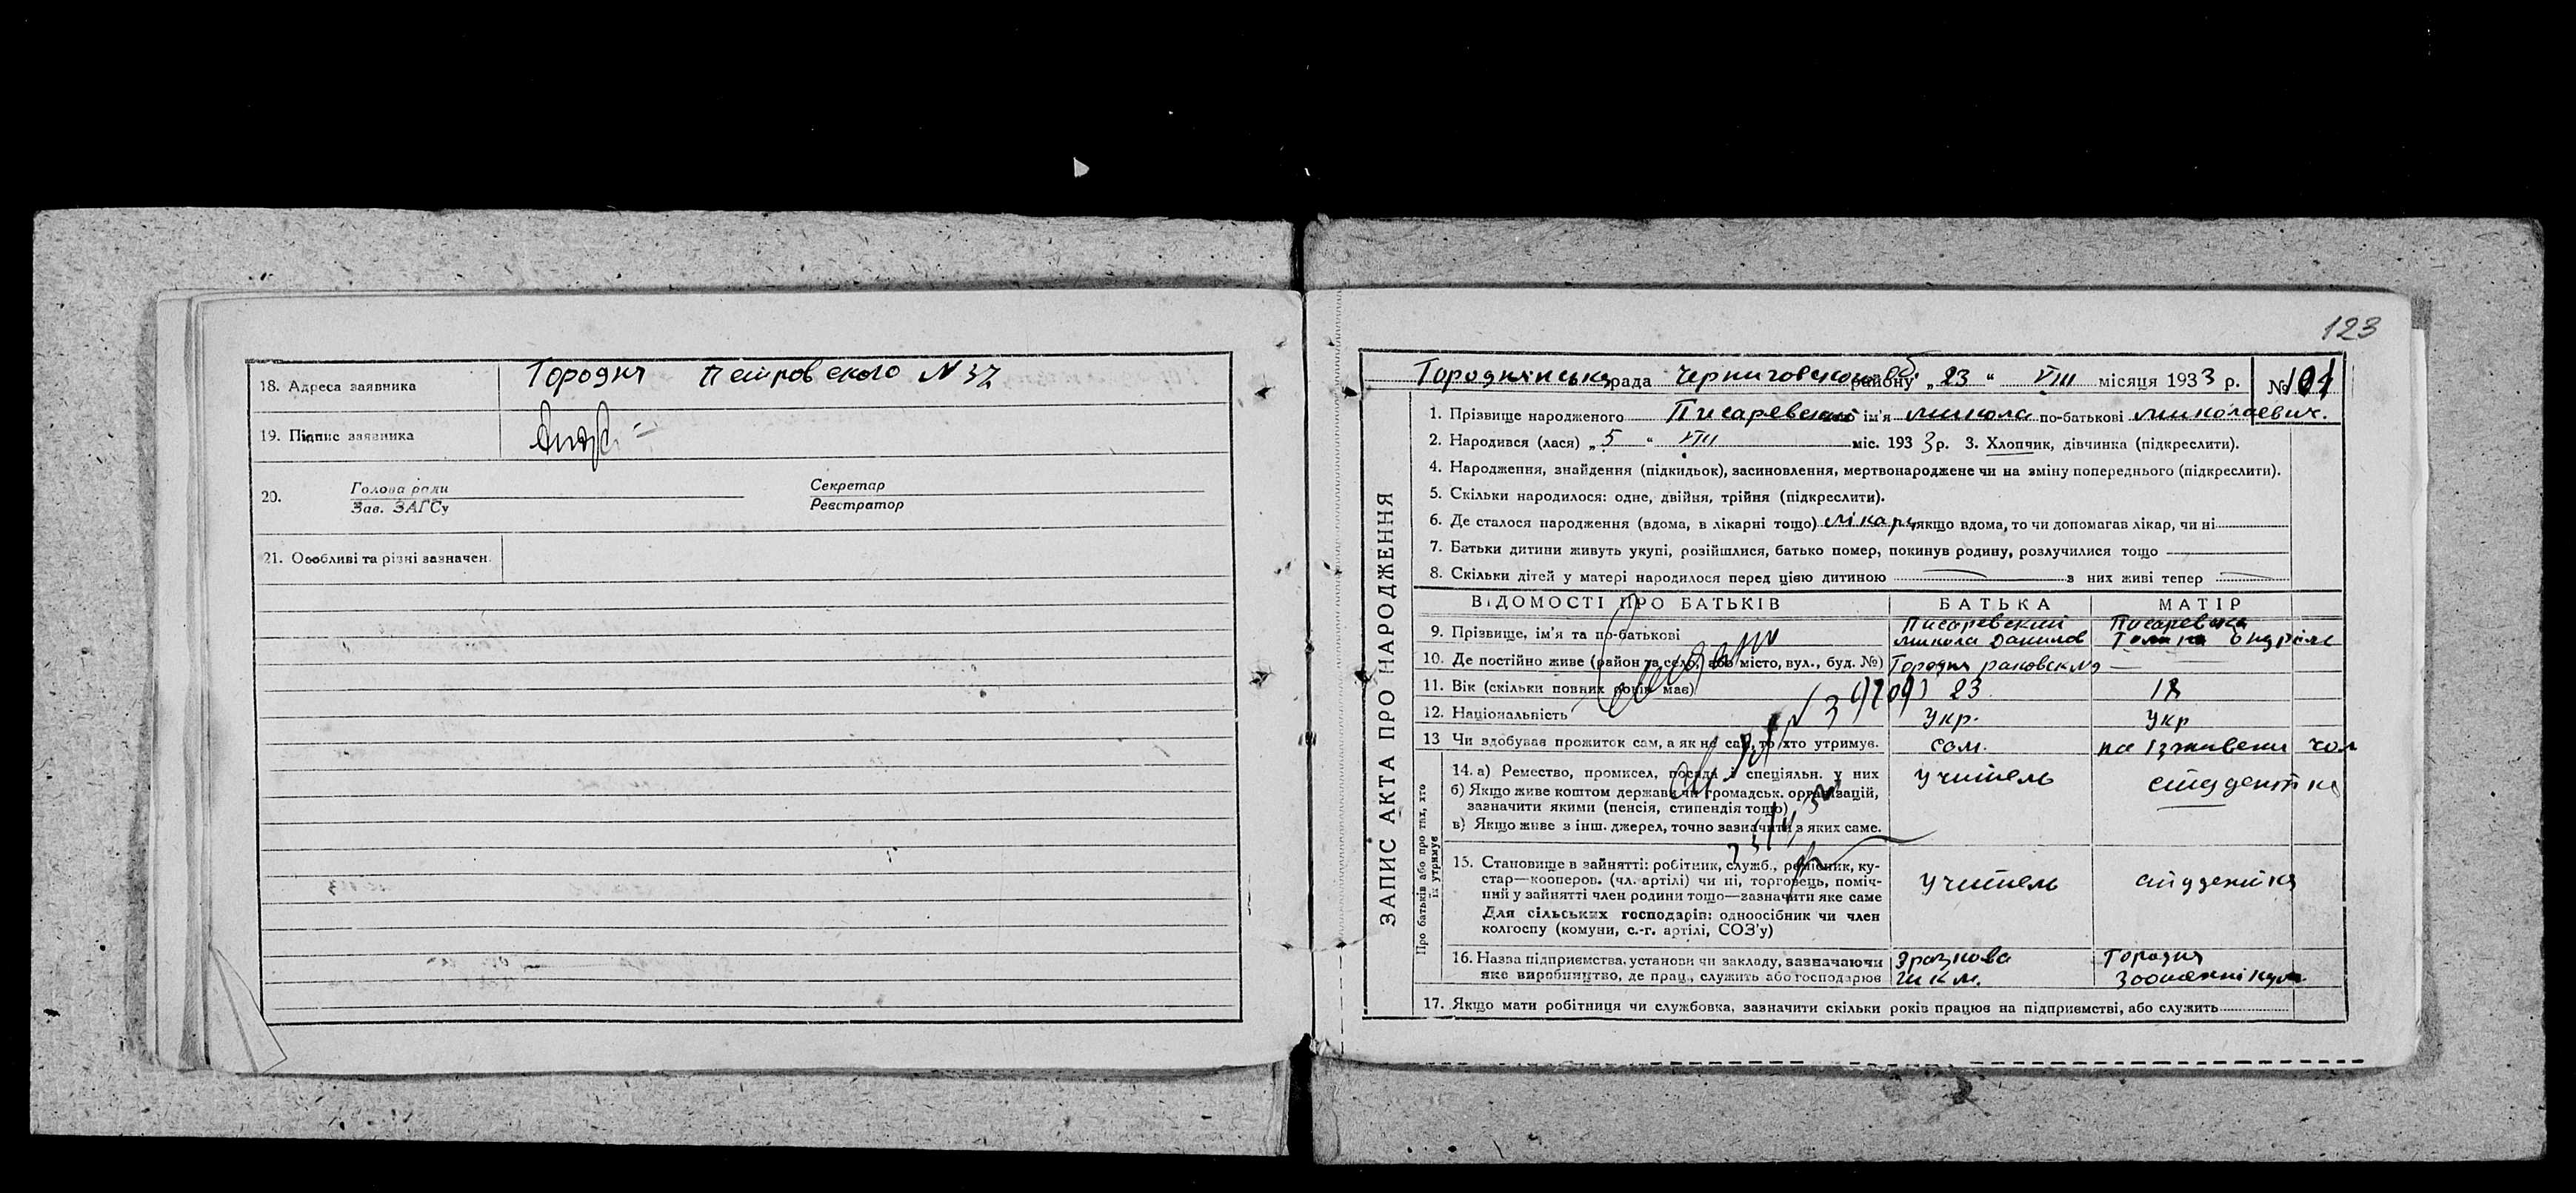 18. Адреса заявника Городня Петровского N 32
19. Підпис заявника
20. Голова ради Секретар
Зав. ЗАГСу Реєстратор
21. Особливі та різні зазначен.
123
Городнянська рада Черниговской району „ 23 “ VIII місяця 1933 р. № 101
ЗАПИС АКТА ПРО НАРОДЖЕННЯ
1. Прізвище народженого Писаревский ім'я микола по-батькові миколаевич.
2. Народився (лася) „ 5 “ VIII міс. 1933 р. 3. Хлопчик, дівчинка (підкреслити).
4. Народження, знайдення (підкидьок), засиновлення, мертвонароджене чи на зміну попереднього (підкреслити).
5. Скільки народилося: одне, двійня, трійня (підкреслити).
6. Де сталося народження (вдома, в лікарні тощо) лікарн якщо вдома, то чи допомагав лікар, чи ні
7. Батьки дитини живуть укупі, розійшлися, батько помер, покинув родину, розлучилися тощо
8. Скільки дітей у матері народилося перед цією дитиною з них живі тепер
ВІДОМОСТІ ПРО БАТЬКІВ БАТЬКА МАТІР
9. Прізвище, ім'я та по-батькові Писаревский Писаревска
микола Данилов
10. Де постійно живе (район та село, або місто, вул., буд. №) Городня
11. Вік (скільки повних років має) 23 18
12. Національність Укр. Укр
13 Чи здобував прожиток сам, а як не сам, то хто утримує. сам. на
Про батьків або про тах, хто їх утримує
14. а) Ремество, промисел, посада і спеціяльн. у них учитель студентка
б) Якщо живе коштом держави чи громадськ. організацій,
зазначити якими (пенсія, стипендія тощо)
в) Якщо живе з інш. джерел, точно зазначити з яких саме.
15. Становище в зайнятті: робітник, служб., ремісник, ку-
стар—кооперов. (чл. артілі) чи ні, торговець, поміч- учитель студентка
ний у зайнятті член родини тощо—зазначити яке саме
Для сільських господарів: одноосібник чи член
колгоспу (комуни, с.-г. артілі, СОЗ'у)
16. Назва підприємства, установи чи закладу, зазначаючи Зразкова Городня
яке виробництво, де прац., служить або господарює Зоотехнікум
17. Якщо мати робітниця чи службовка, зазначити скільки років працює на підприємстві, або служить